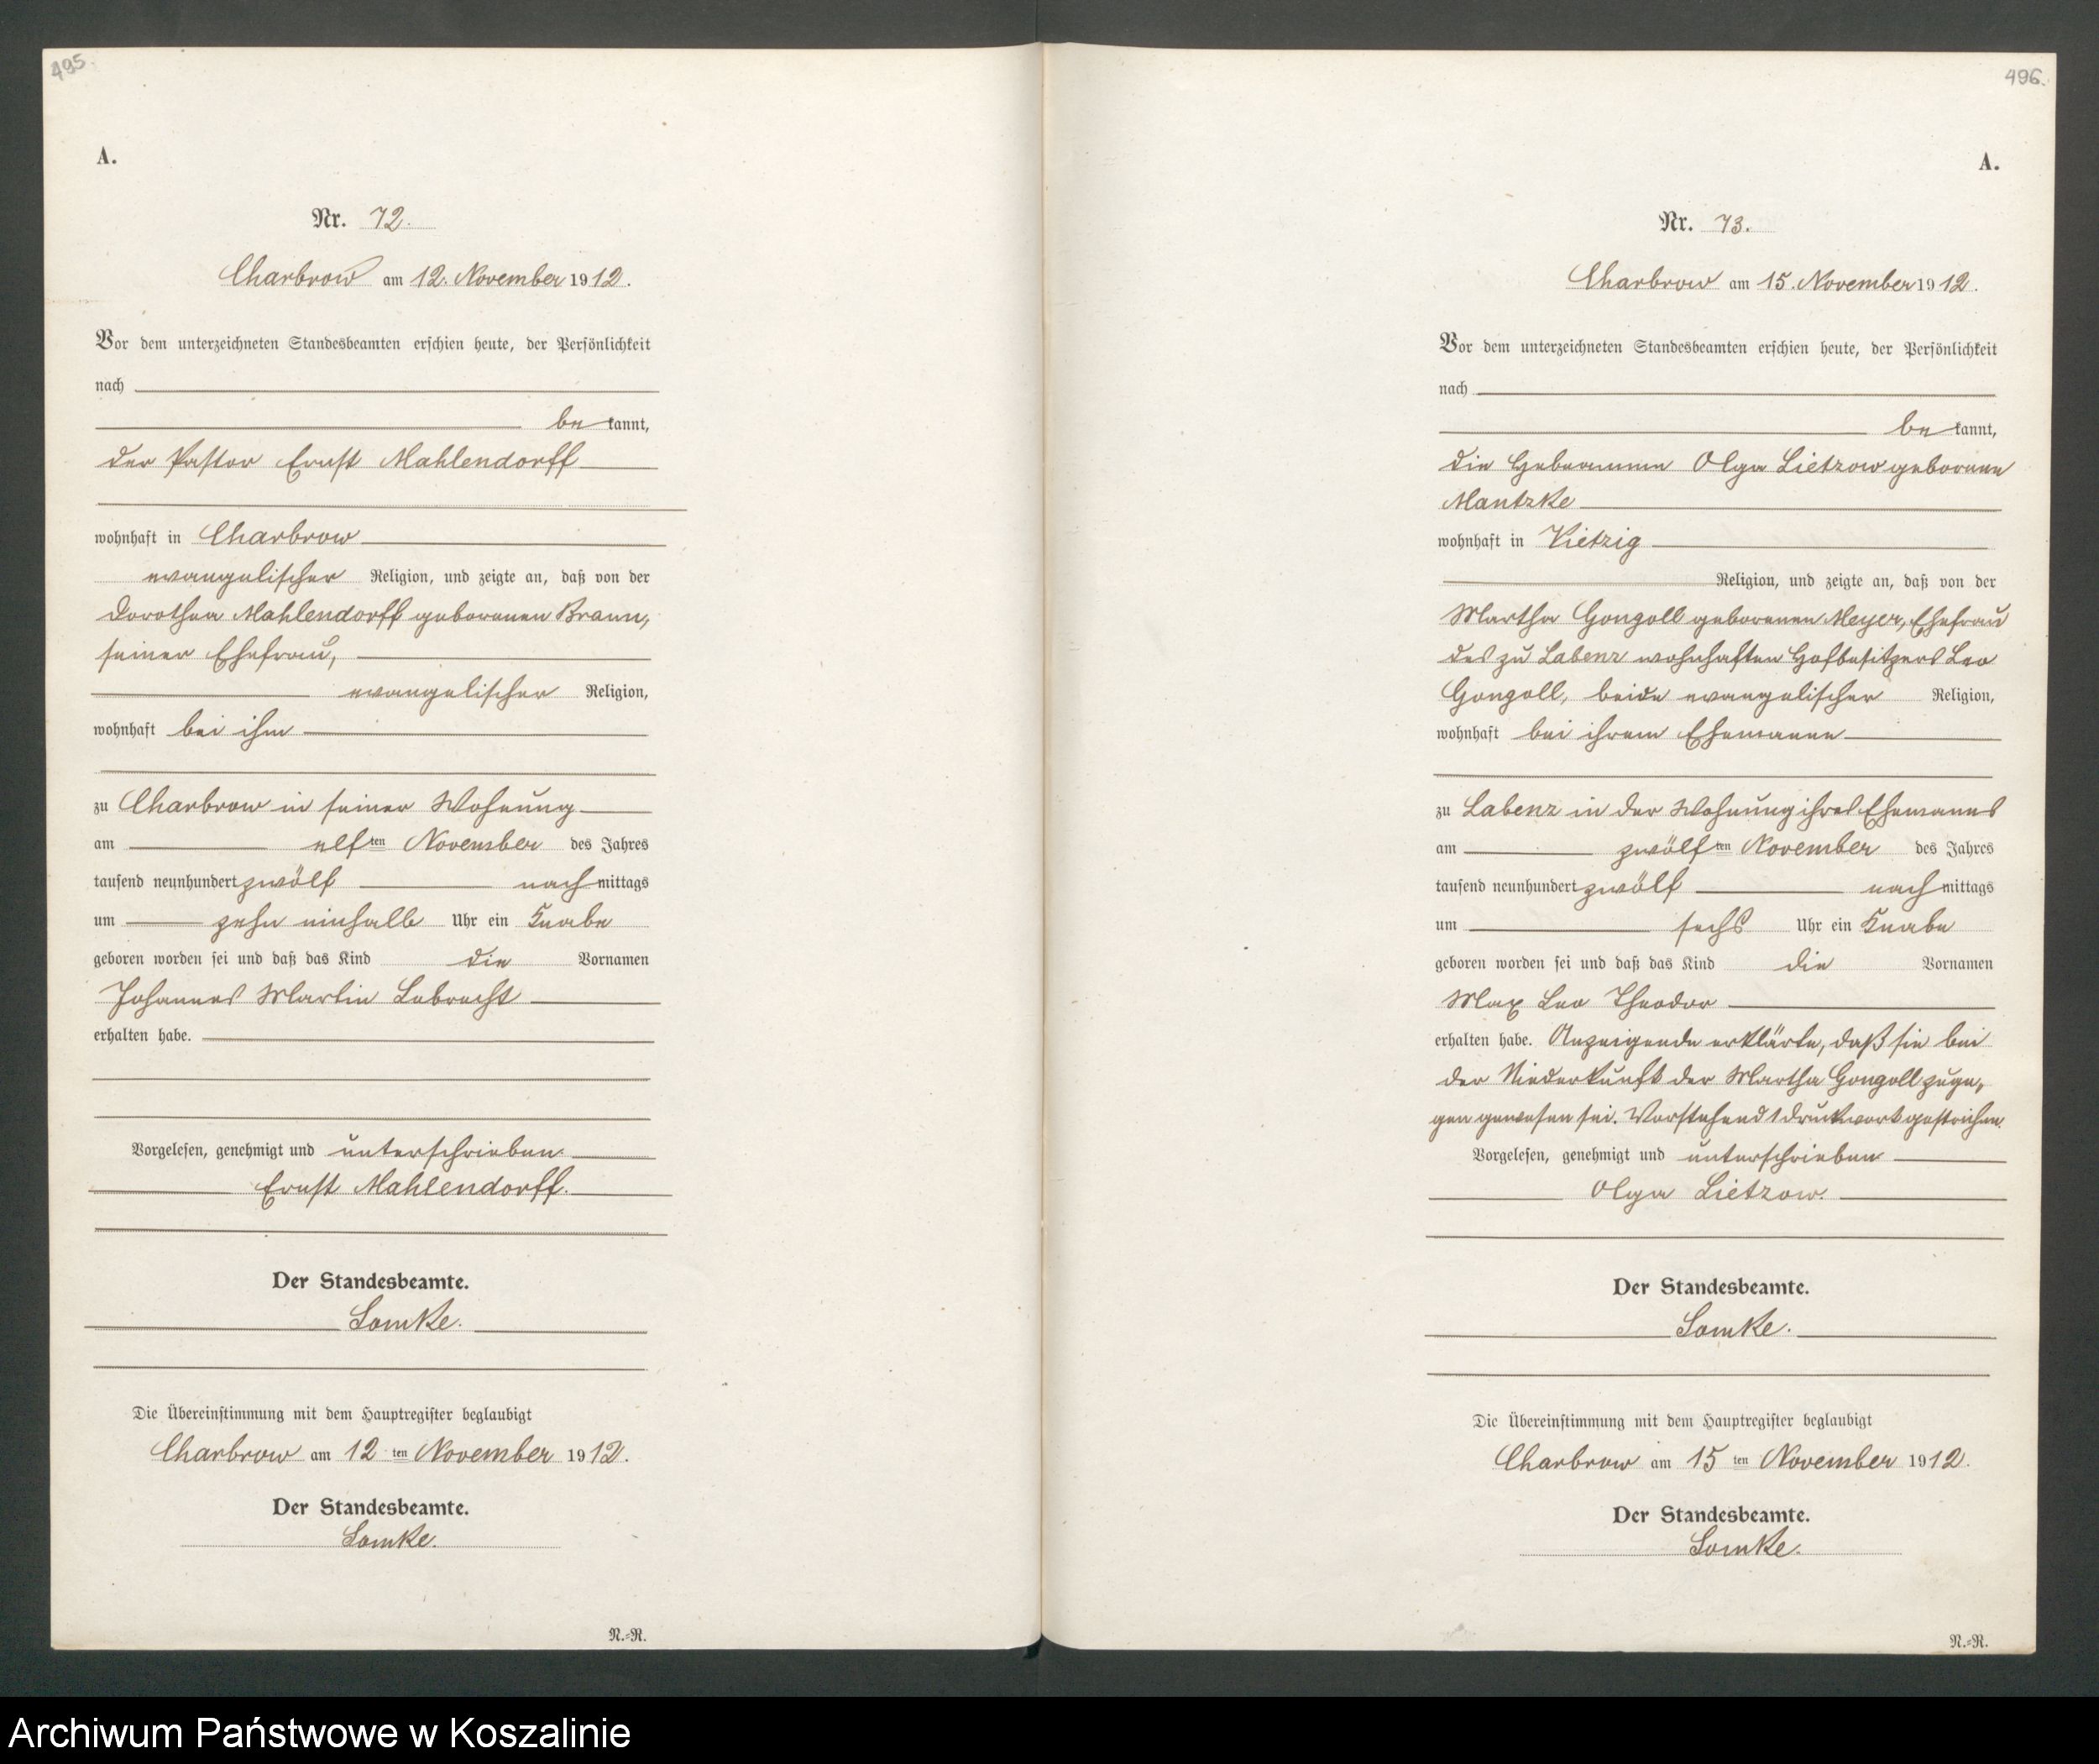 495.
A.
Nr. 72.
Charbrow am 12. November 1912.
Vor dem unterzeichneten Standesbeamten erschien heute, der Persönlichkeit
nach
be kannt,
der Pastor Ernst Mahlendorff
wohnhaft in Charbrow
evangelischer Religion, und zeigte an, daß von der
Dorothea Mahlendorff geborenen Braun,
seiner Ehefrau,
evangelischer Religion,
wohnhaft bei ihm
zu Charbrow in seiner Wohnung
am elften November des Jahres
tausend neunhundert zwölf nach mittags
um zehn einhalb Uhr ein Knabe
geboren worden sei und daß das Kind die Vornamen
Johannes Martin Lebrecht
erhalten habe.
Vorgelesen, genehmigt und unterschrieben
Ernst Mahlendorff.
Der Standesbeamte.
Lemke.
Die Übereinstimmung mit dem Hauptregister beglaubigt
Charbrow am 12 ten November 1912.
Der Standesbeamte.
Lemke.
N.=R.
496.
A.
Nr. 73.
Charbrow am 15. November 1912.
Vor dem unterzeichneten Standesbeamten erschien heute, der Persönlichkeit
nach
be kannt,
die Hebamme Olga Lietzow geborene
Mantzke
wohnhaft in Vietzig
Religion, und zeigte an, daß von der
Martha Gongoll geborenen Meyer, Ehefrau
des zu Labenz wohnhaften Hofbesitzers Leo
Gongoll, beide evangelischer Religion,
wohnhaft bei ihrem Ehemanne
zu Labenz in der Wohnung ihres Ehemannes
am zwölften November des Jahres
tausend neunhundert zwölf nach mittags
um sechs Uhr ein Knabe
geboren worden sei und daß das Kind die Vornamen
Max Leo Theodor
erhalten habe. Anzeigende erklärte, daß sie bei
der Niederkunft der Martha Gongoll zuge,
gen gewesen sei. Vorstehend 1 Druckwort gestrichen.
Vorgelesen, genehmigt und unterschrieben
Olga Lietzow.
Der Standesbeamte.
Lemke.
Die Übereinstimmung mit dem Hauptregister beglaubigt
Charbrow am 15 ten November 1912.
Der Standesbeamte.
Lemke.
N.=R.
Archiwum Państwowe w Koszalinie